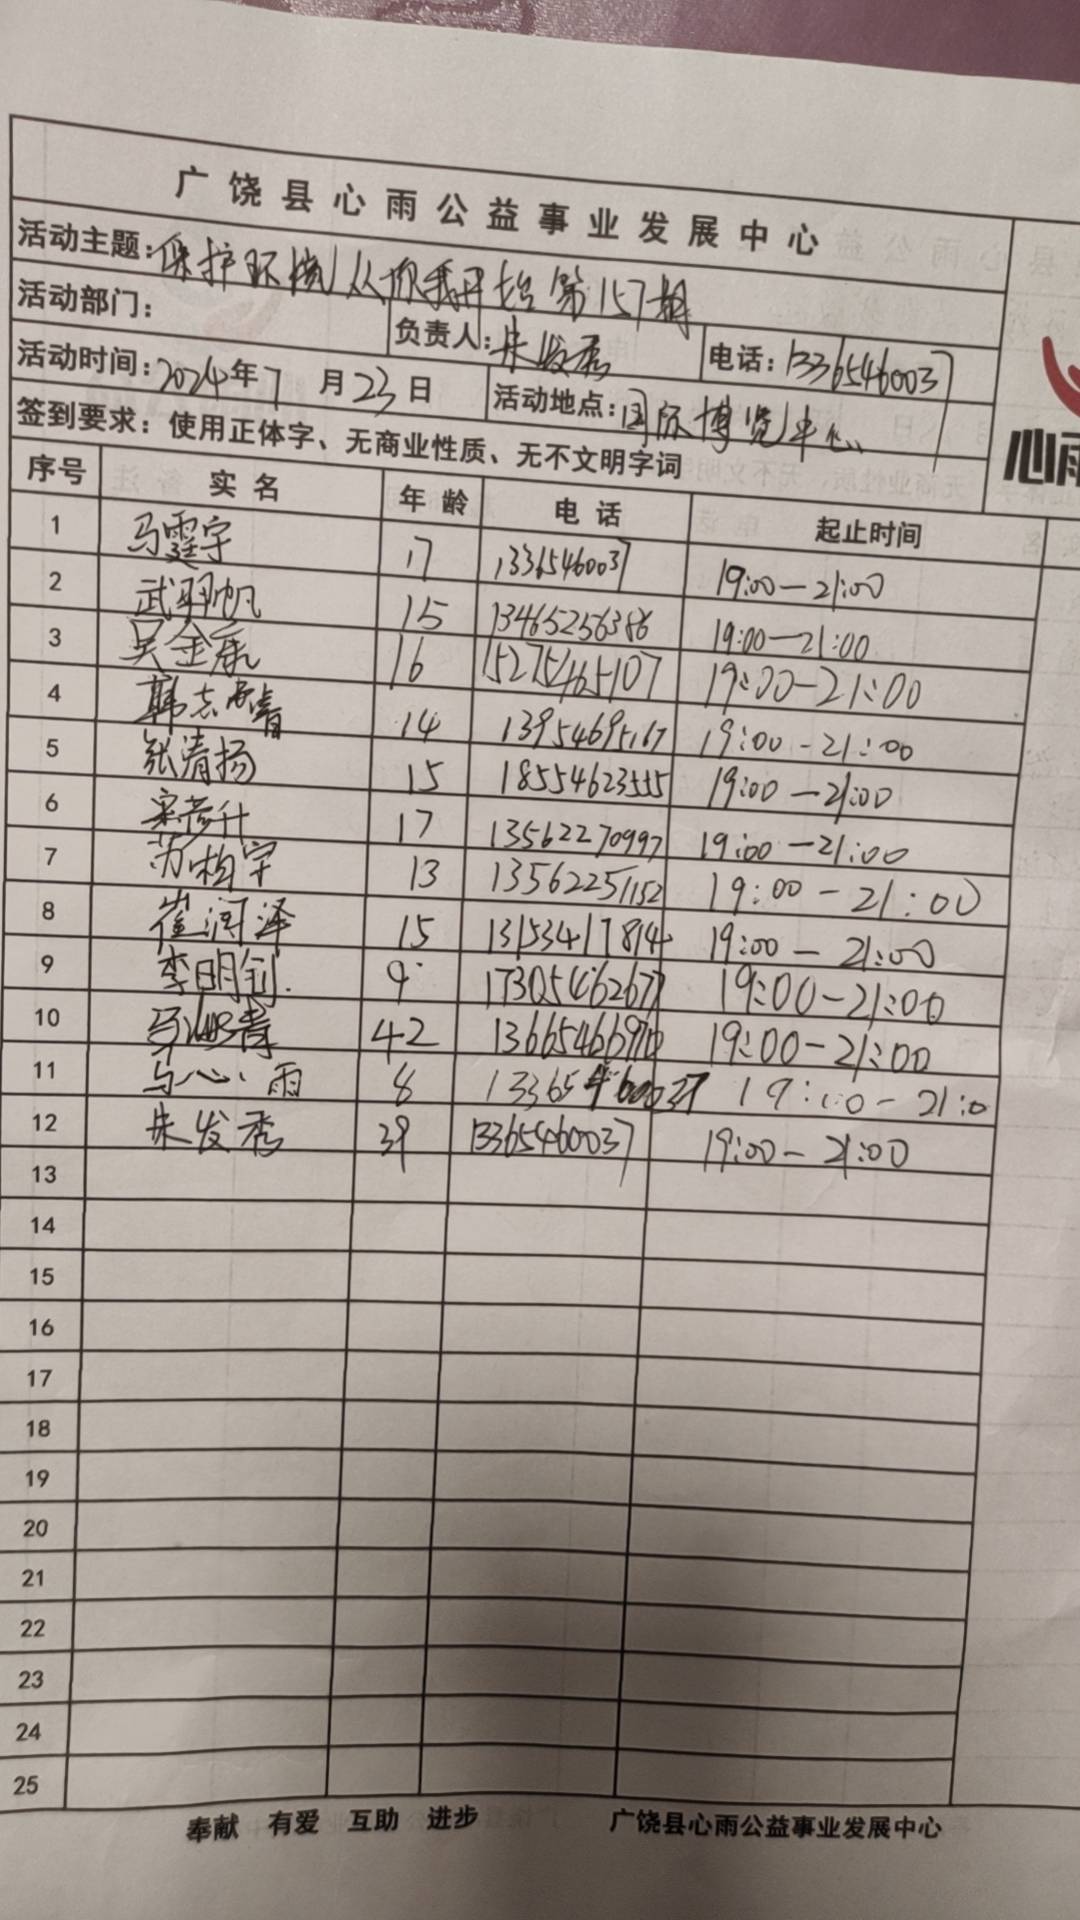 广饶县心雨公益事业发展中心
活动主题：保护环境从你我开始第157期
活动部门：
负责人：朱发秀 电话：13365460037
活动时间：2024年7月23日 活动地点：国际博览中心
签到要求：使用正体字、无商业性质、无不文明字词
心雨
序号 实名 年龄 电话 起止时间
1 马霆宇 17 13365460037 19:00—21:00
2 武翔帆 15 13465256386 19:00—21:00
3 吴金 16 15275465107 19:00-21:00
4 韩志 14 13954695167 19:00-21:00
5 张清扬 15 18554623555 19:00—21:00
6 宋彦升 17 13562270997 19:00—21:00
7 苏柏宇 13 13562251152 19:00-21:00
8 崔润泽 15 13153417814 19:00—21:00
9 李明钊 9 17305462677 19:00-21:00
10 马 青 42 19:00-21:00
11 马心雨 8 13365460037 19:00-21:0
12 朱发秀 39 13365460037 19:00-21:00
13
14
15
16
17
18
19
20
21
22
23
24
25
奉献 有爱 互助 进步 广饶县心雨公益事业发展中心